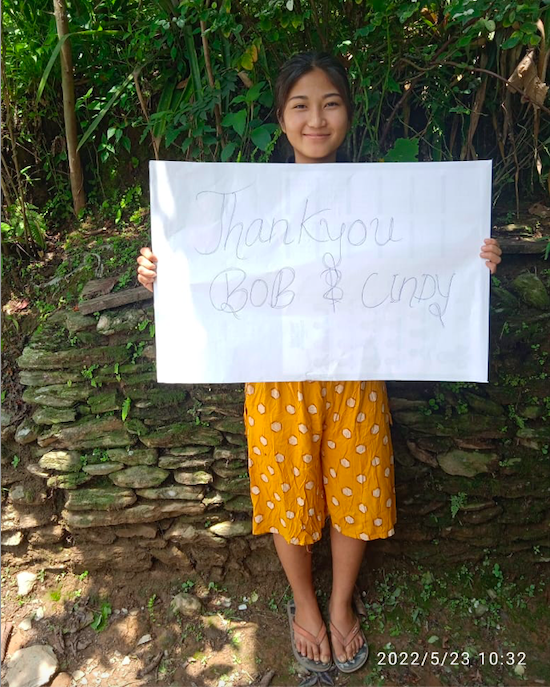 Thankyou
BOB & CINDY
2022/5/23 10:32